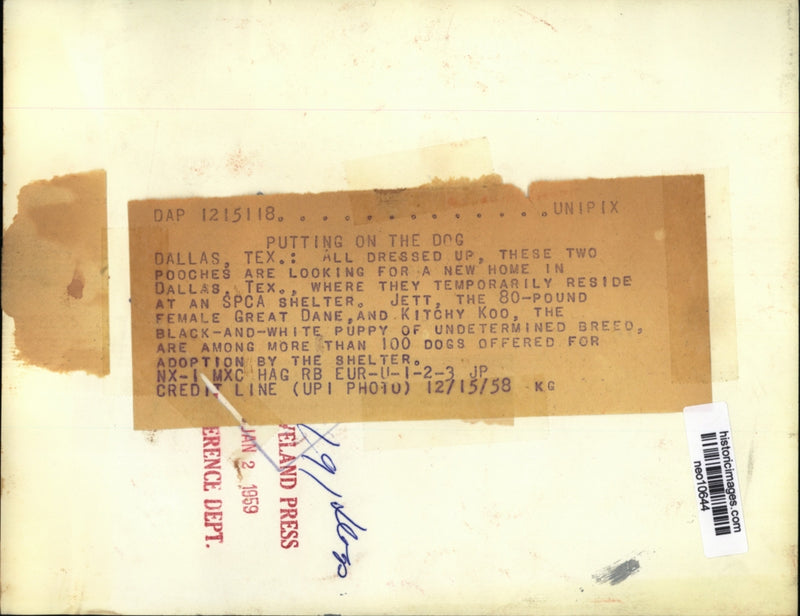 DAP 1215118. . . . . . . . . . . . . . . UNIPIX
PUTTING ON THE DOG
DALLAS, TEX.: ALL DRESSED UP, THESE TWO
POOCHES ARE LOOKING FOR A NEW HOME IN
DALLAS, TEX., WHERE THEY TEMPORARILY RESIDE
AT AN SPCA SHELTER. JETT, THE 80-POUND
FEMALE GREAT DANE, AND KITCHY KOO, THE
BLACK-AND-WHITE PUPPY OF UNDETERMINED BREED,
ARE AMONG MORE THAN 100 DOGS OFFERED FOR
ADOPTION BY THE SHELTER.
NX-1 MXC HAG RB EUR-U-1-2-3 JP
CREDIT LINE (UPI PHOTO) 12/15/58 KG
VELAND PRESS
JAN 2 1959
ERENCE DEPT.
Dogs
historicimages.com
neo10644